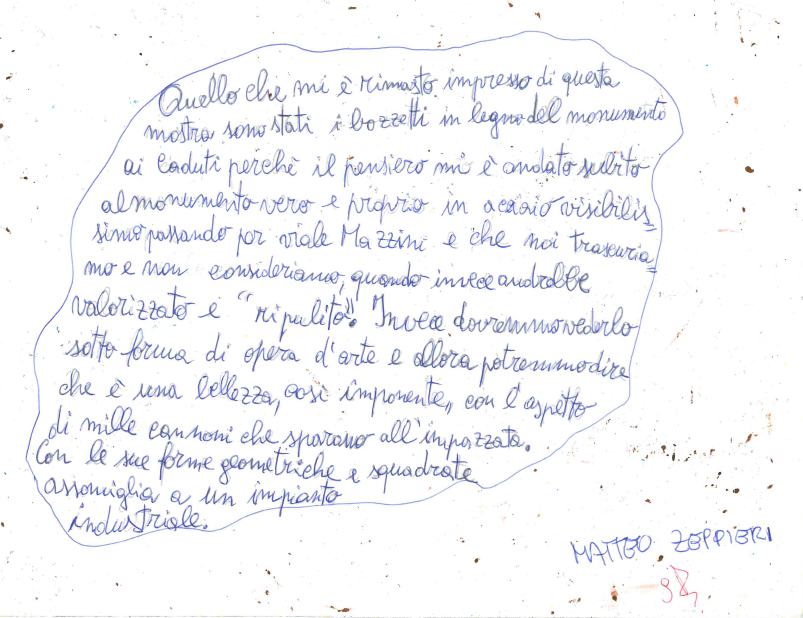 Quello che mi è rimasto impresso di questa
mostra sono stati i bozzetti in legno del monumento
ai caduti perchè il pensiero mi è andato subito
al monumento vero e proprio in acciaio visibilis=
simo passando per viale Mazzini e che noi trascuria=
mo e non consideriamo, quando invece andrebbe
valorizzato e "ripulito". Invece dovremmo vederlo
sotto forma di opera d'arte e allora potremmo dire
che è una bellezza, così imponente, con l'aspetto
di mille cannoni che sparano all'impazzata.
Con le sue forme geometriche e squadrate
assomiglia a un impianto
industriale.
MATTEO ZEPPIERI